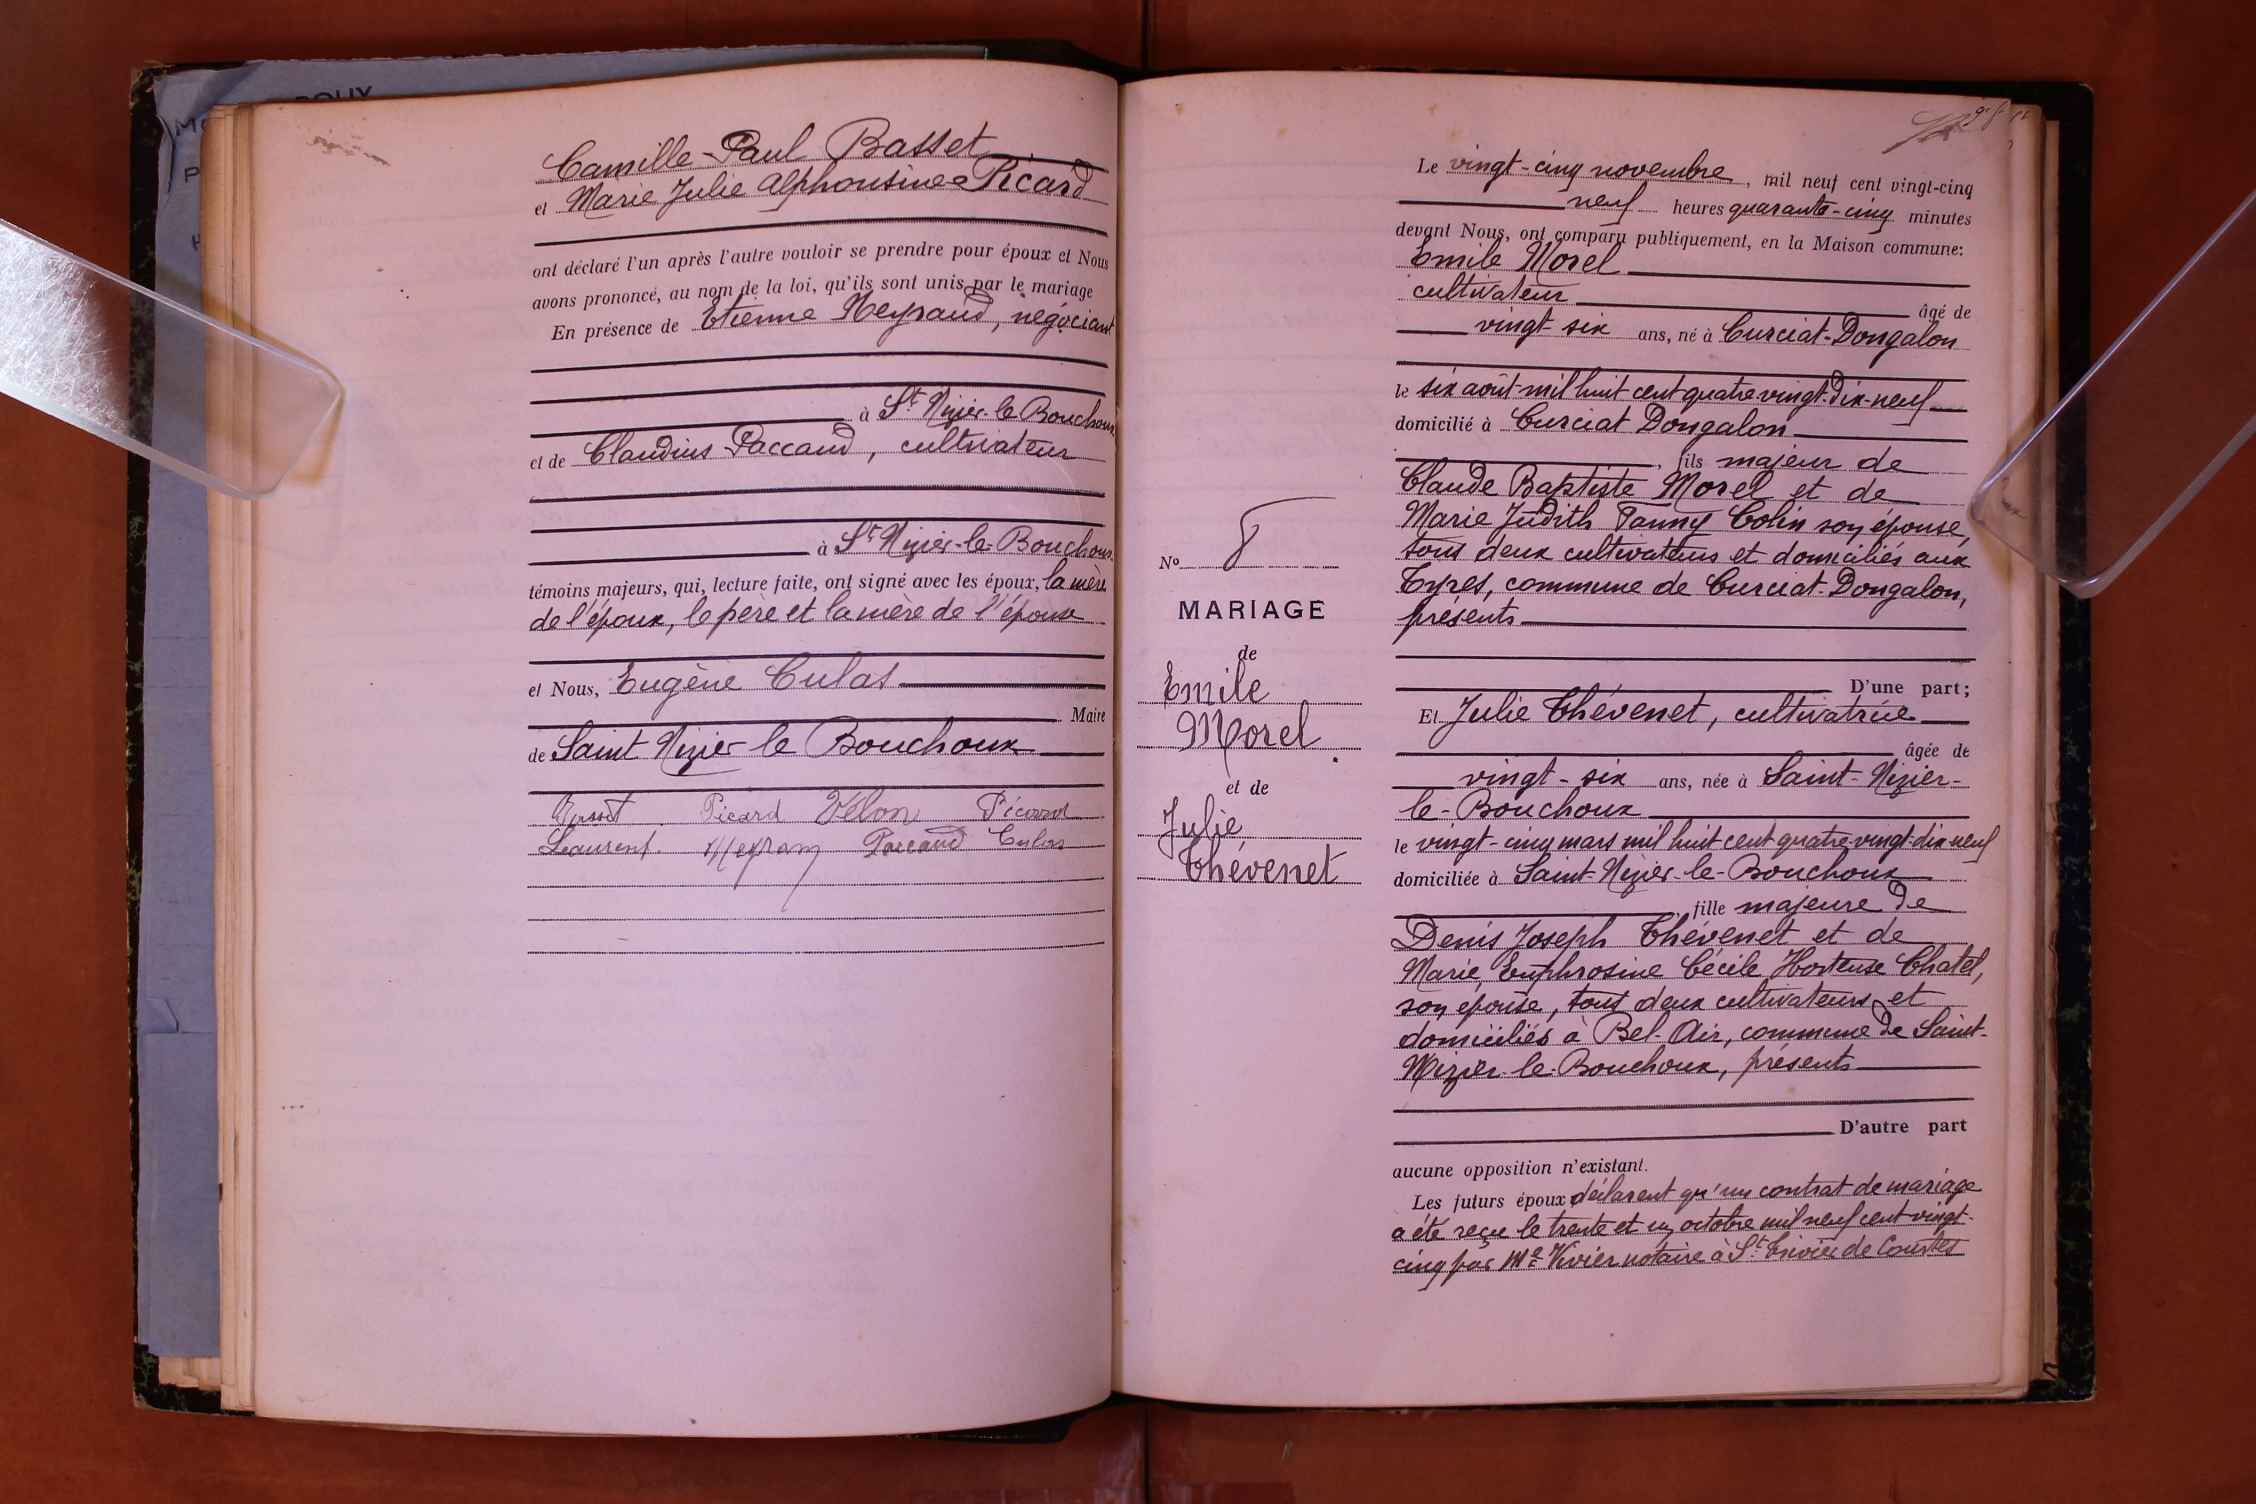 Camille-Paul Basset
et Marie Julie Alphonsine Picard
ont déclaré l'un après l'autre vouloir se prendre pour époux et Nous
avons prononcé, au nom de la loi, qu'ils sont unis par le mariage
En présence de Etienne Meyraud, négociant
à St Nizier-le Bouchoux
et de Claudius Paccaud, cultivateur
à St Nizier-le-Bouchoux
témoins majeurs, qui, lecture faite, ont signé avec les époux, la mère
de l'époux, le père et la mère de l'épouse
et Nous, Eugène Culas
Maire
de Saint Nizier le Bouchoux
Basset Picard Vélon Picard
Laurent Paccaud Culas
Le vingt-cinq novembre, mil neuf cent vingt-cinq
neuf heures quarante-cinq minutes
devant Nous, ont comparu publiquement, en la Maison commune:
Emile Morel
cultivateur
âgé de
vingt-six ans, né à Curciat-Dongalon
le six août mil huit cent quatre vingt-dix-neuf
domicilié à Curciat Dongalon
, fils majeur de
Claude Baptiste Morel et de
Marie Judith Fanny Colin son épouse,
tous deux cultivateurs et domiciliés aux
Tyres, commune de Curciat-Dongalon,
présents
D'une part;
Et Julie Thévenet, cultivatrice
âgée de
vingt-six ans, née à Saint-Nizier-
le-Bouchoux
le vingt-cinq mars mil huit cent quatre-vingt-dix-neuf
domiciliée à Saint-Nizier-le-Bouchoux
, fille majeure de
Denis Joseph Thévenet et de
Marie, Euphrosine Cécile Hortense Chatel,
son épouse, tous deux cultivateurs et
domiciliés à Bel-Air, commune de Saint-
Nizier-le-Bouchoux, présents
D'autre part
aucune opposition n'existant.
Les futurs époux déclarent qu'un contrat de mariage
a été reçu le trente et un octobre mil neuf cent vingt-
cinq par Me Vivier notaire à St Trivier de Courtes
No 8
MARIAGE
de
Emile
Morel
et de
Julie
Thévenet